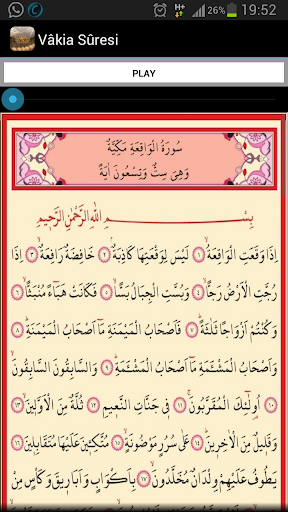 H+
19:52
Vâkia Sûresi
PLAY
سُورَةُ الْوَاقِعَةِ مَكِّيَّةٌ
وَهِىَ سِتٌّ وَتِسْعُونَ اٰيَةً
بِسْمِ اللّٰهِ الرَّحْمٰنِ الرَّحِيمِ
اِذَا وَقَعَتِ الْوَاقِعَةُۙ ﴿١﴾ لَيْسَ لِوَقْعَتِهَا كَاذِبَةٌۢ ﴿٢﴾ خَافِضَةٌ رَافِعَةٌۙ ﴿٣﴾ اِذَا
رُجَّتِ الْاَرْضُ رَجًّاۙ ﴿٤﴾ وَبُسَّتِ الْجِبَالُ بَسًّاۙ ﴿٥﴾ فَكَانَتْ هَبَٓاءً مُنْبَثًّاۙ ﴿٦﴾
وَكُنْتُمْ اَزْوَاجًا ثَلٰثَةًۜ ﴿٧﴾ فَاَصْحَابُ الْمَيْمَنَةِ مَٓا اَصْحَابُ الْمَيْمَنَةِۜ ﴿٨﴾
وَاَصْحَابُ الْمَشْـَٔمَةِ مَٓا اَصْحَابُ الْمَشْـَٔمَةِۜ ﴿٩﴾ وَالسَّابِقُونَ السَّابِقُونَۙ
﴿١٠﴾ اُو۬لٰٓئِكَ الْمُقَرَّبُونَۚ ﴿١١﴾ فِى جَنَّاتِ النَّعِيمِ ﴿١٢﴾ ثُلَّةٌ مِنَ الْاَوَّلِينَۙ
﴿١٣﴾ وَقَلِيلٌ مِنَ الْاٰخِرِينَۜ ﴿١٤﴾ عَلٰى سُرُرٍ مَوْضُونَةٍۙ ﴿١٥﴾ مُتَّكِـِٔينَ عَلَيْهَا مُتَقَابِلِينَ
﴿١٦﴾ يَطُوفُ عَلَيْهِمْ وِلْدَانٌ مُخَلَّدُونَۙ ﴿١٧﴾ بِاَكْوَابٍ وَاَبَارِيقَ وَكَأْسٍ مِنْ